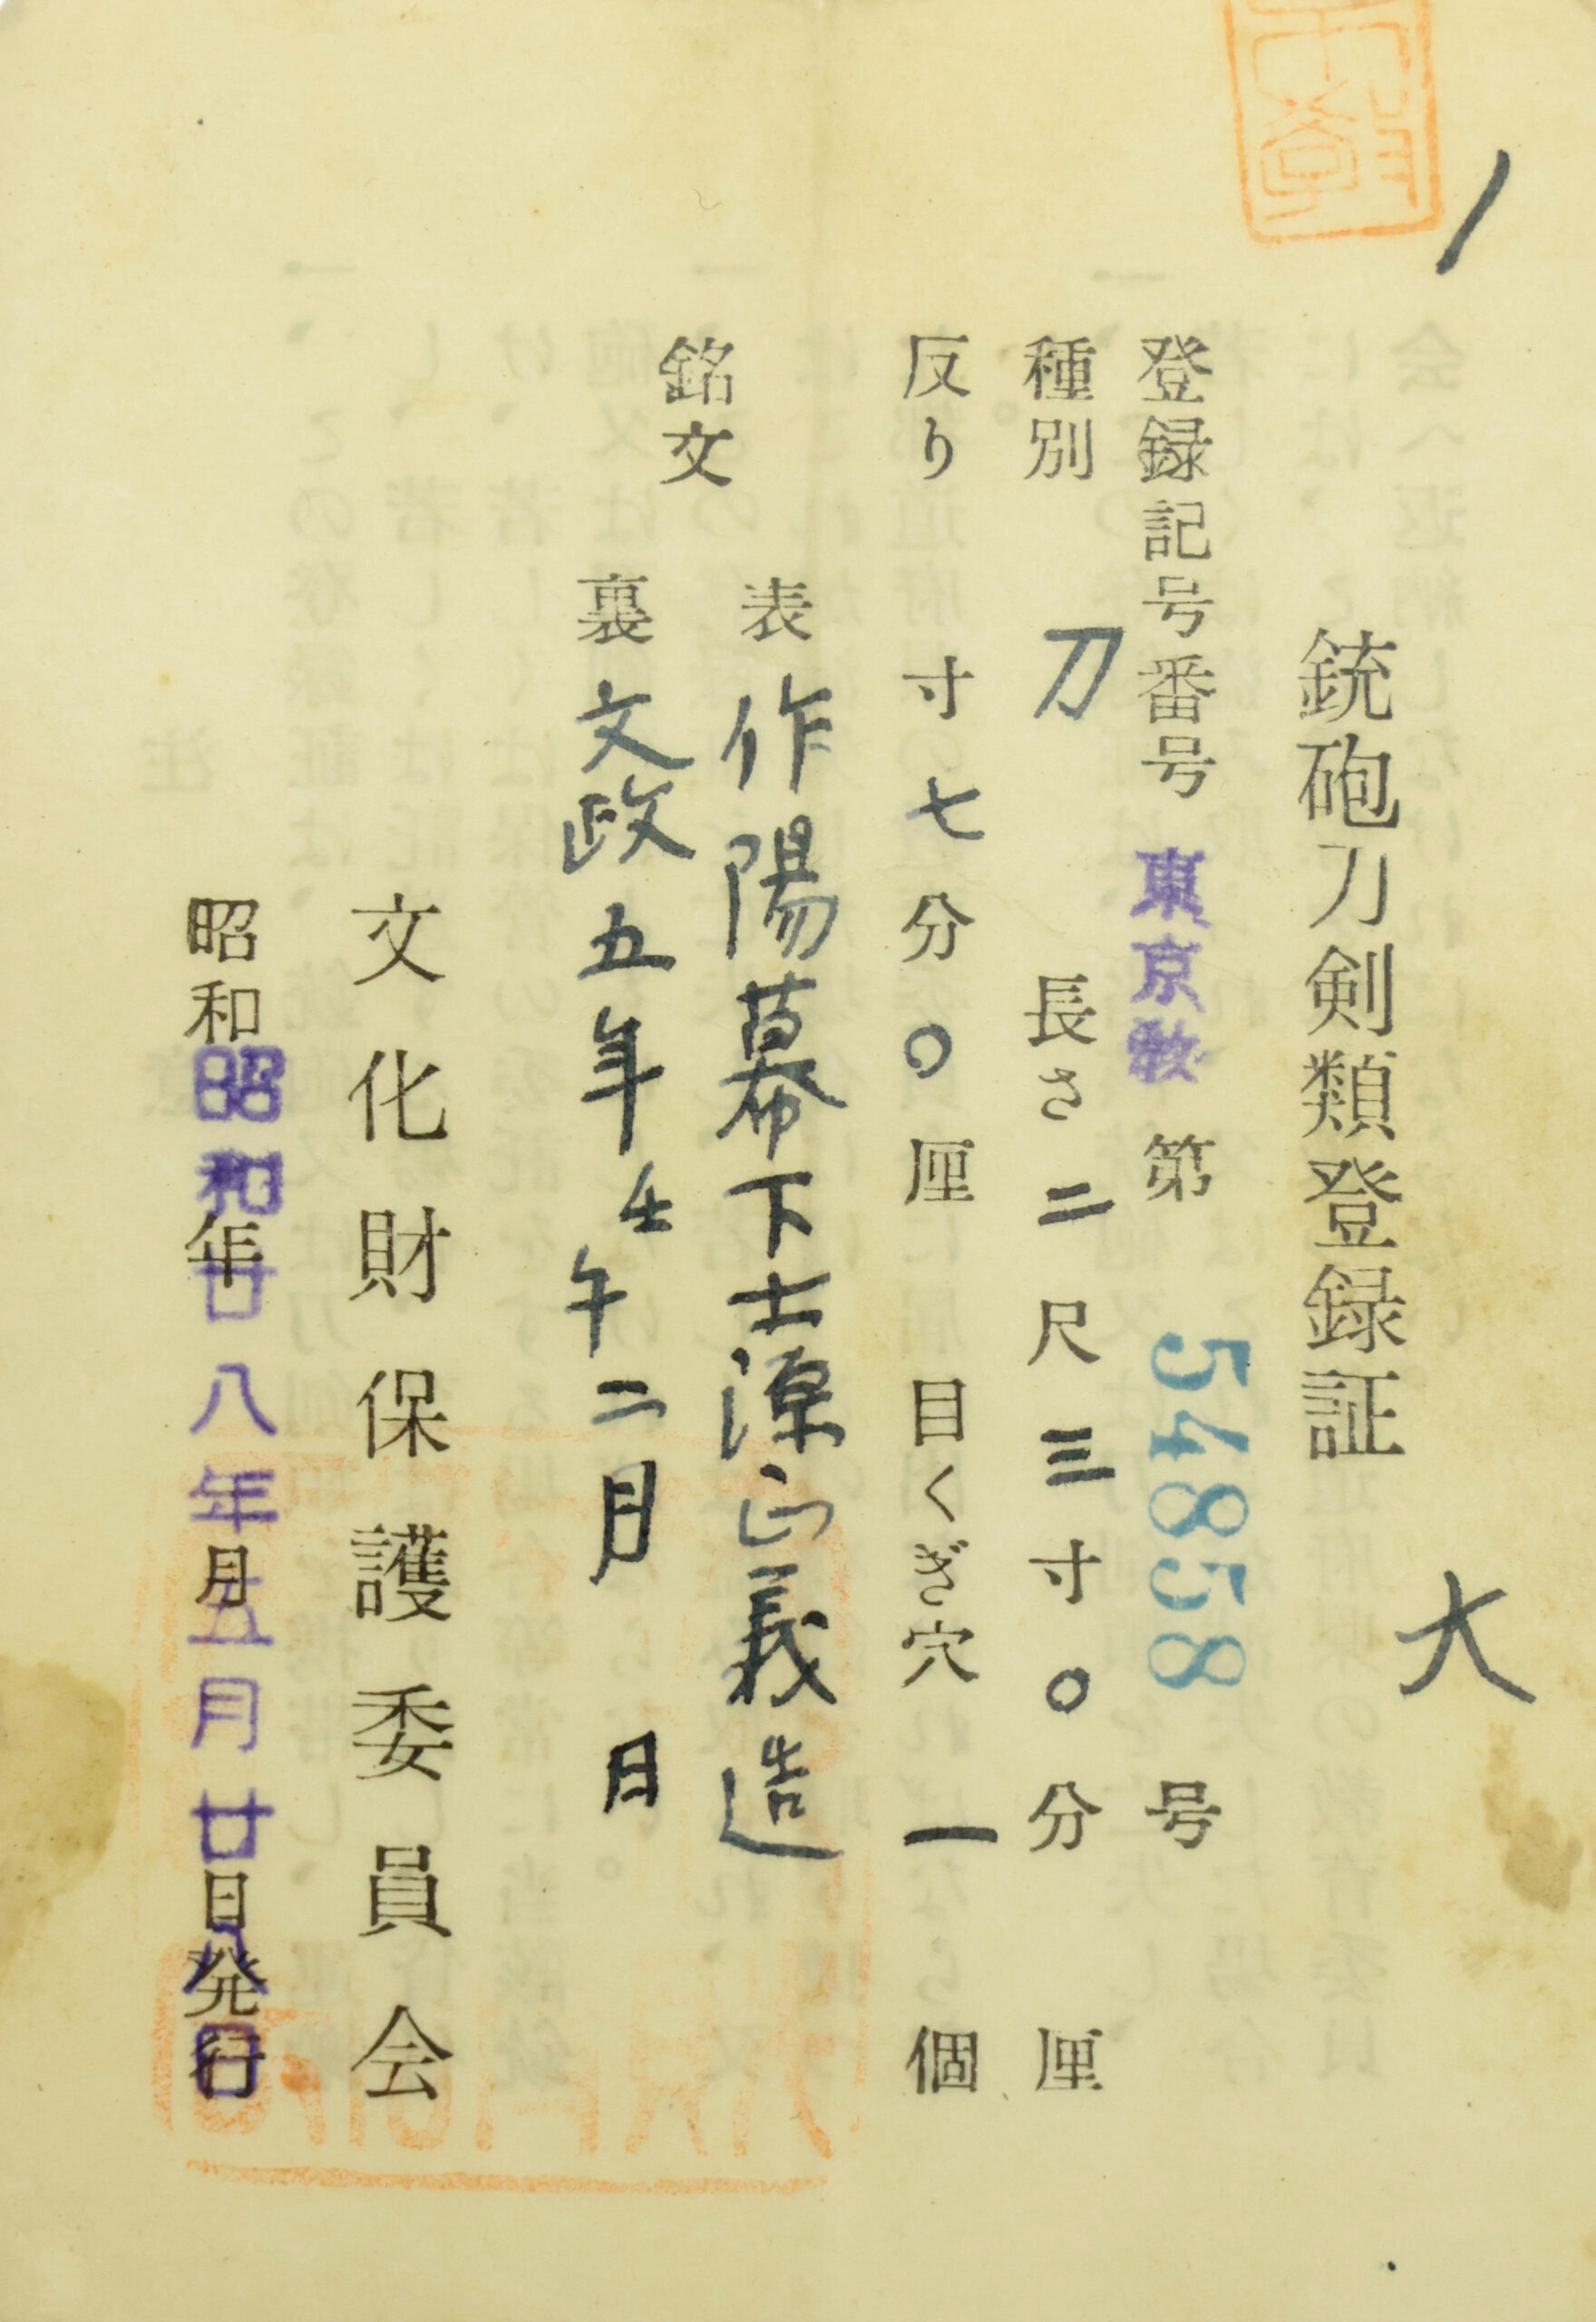 大
銃砲刀剣類登録証
登録記号番号 東京教 第 54858 号
種別 刀 長さ 二尺三寸〇分 厘
反り 寸七分〇厘 目くぎ穴 一 個
銘文
表 作陽幕下士源正義造
裏 文政五年壬午二月 日
文化財保護委員会
昭和 年 月 日発行
昭和廿八年五月廿八日